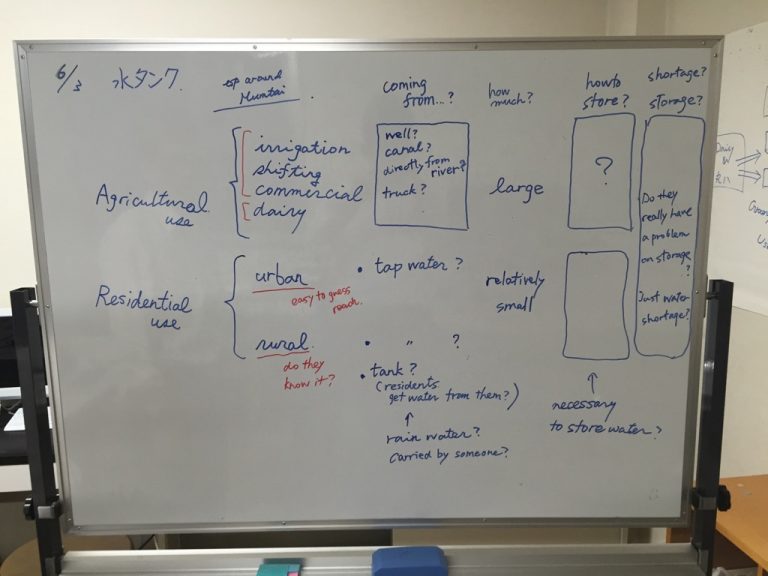 6/3 水タンク
around
Mumbai
coming
from...?
how
much?
how to
store?
shortage?
storage?
Agricultural
use
irrigation
shifting
commercial
dairy
well?
canal?
directly from
river?
truck?
large
?
Do they
really have
a problem
on storage
?
Just water
shortage?
Residential
use
urban
easy to guess
reach.
• tap water?
relatively
small
rural
do they
know it?
• 〃 ?
• tank?
(residents
get water from them?)
↑
rain water?
carried by someone?
↑
necessary
to store water?